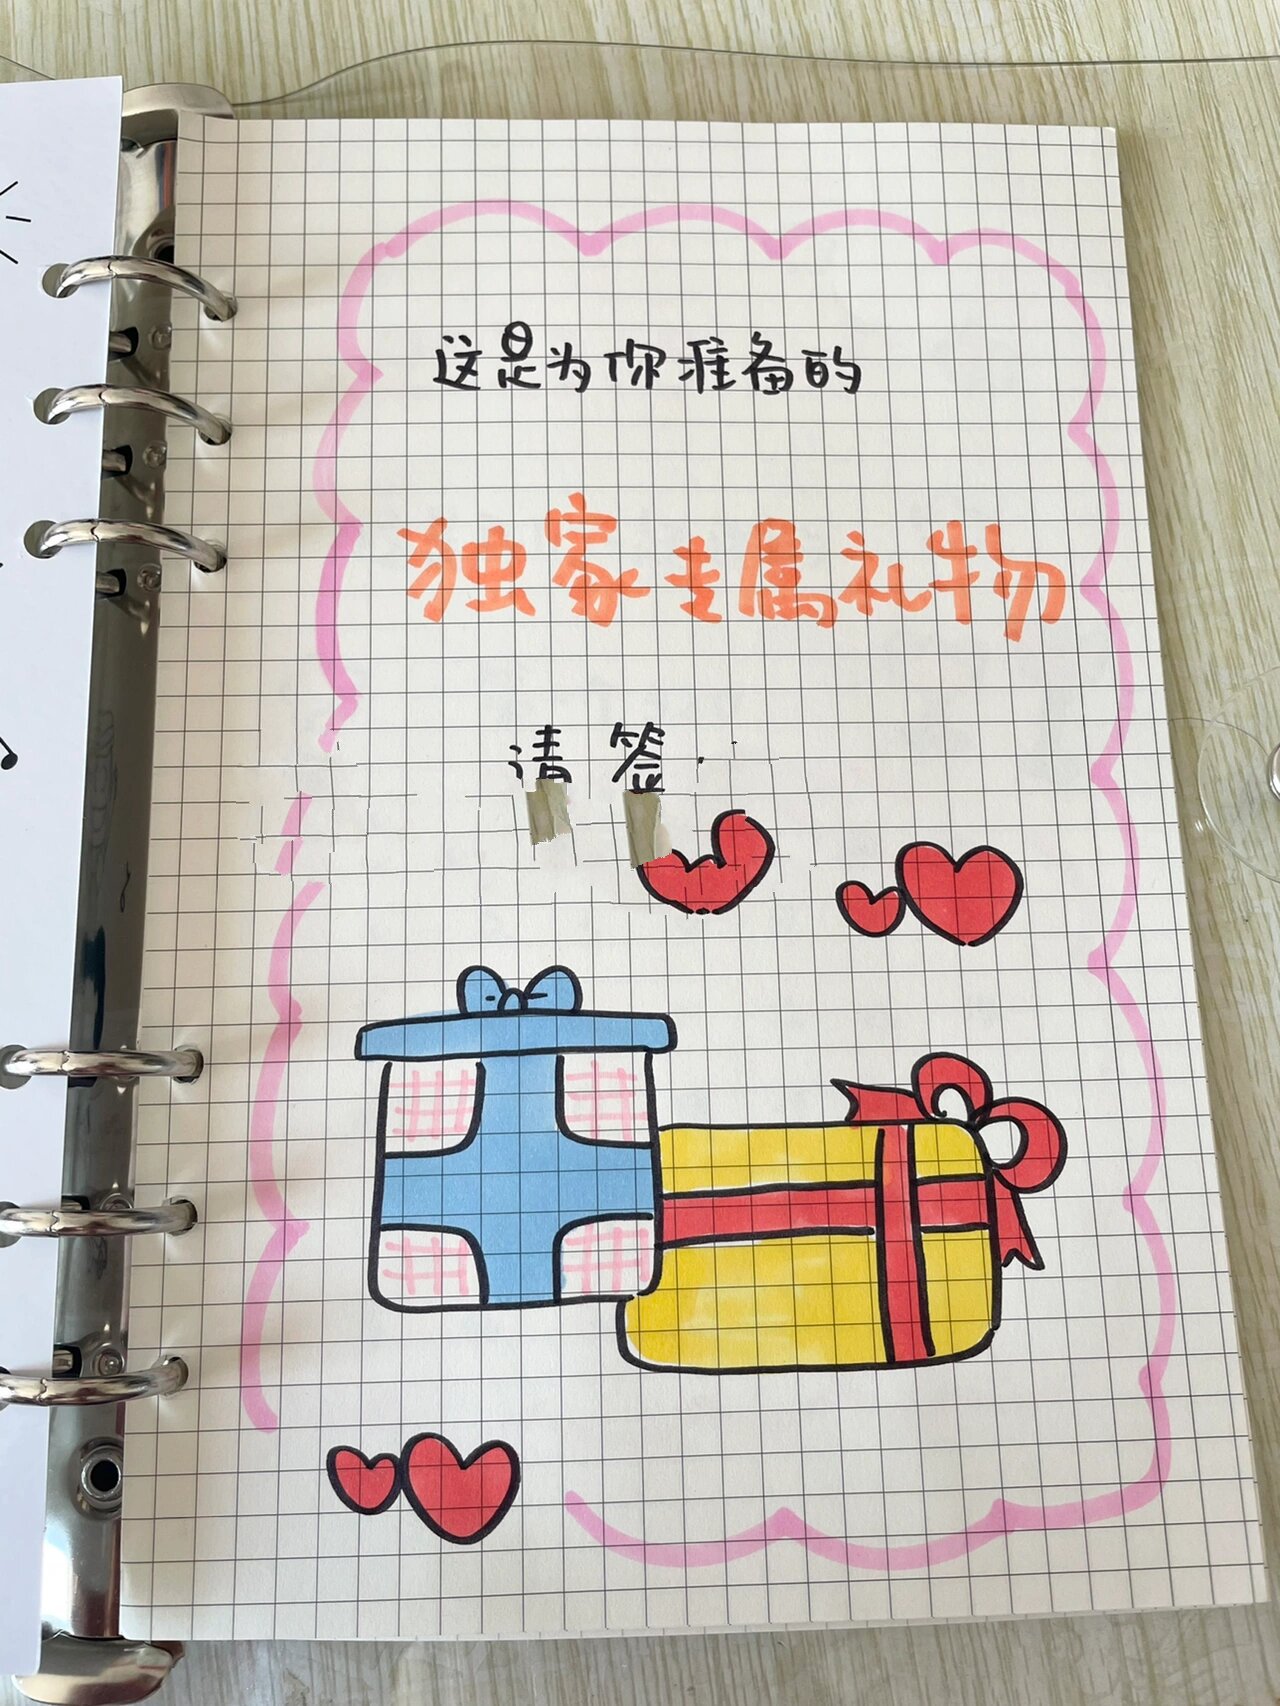 这是为你准备的
独家专属礼物
请签